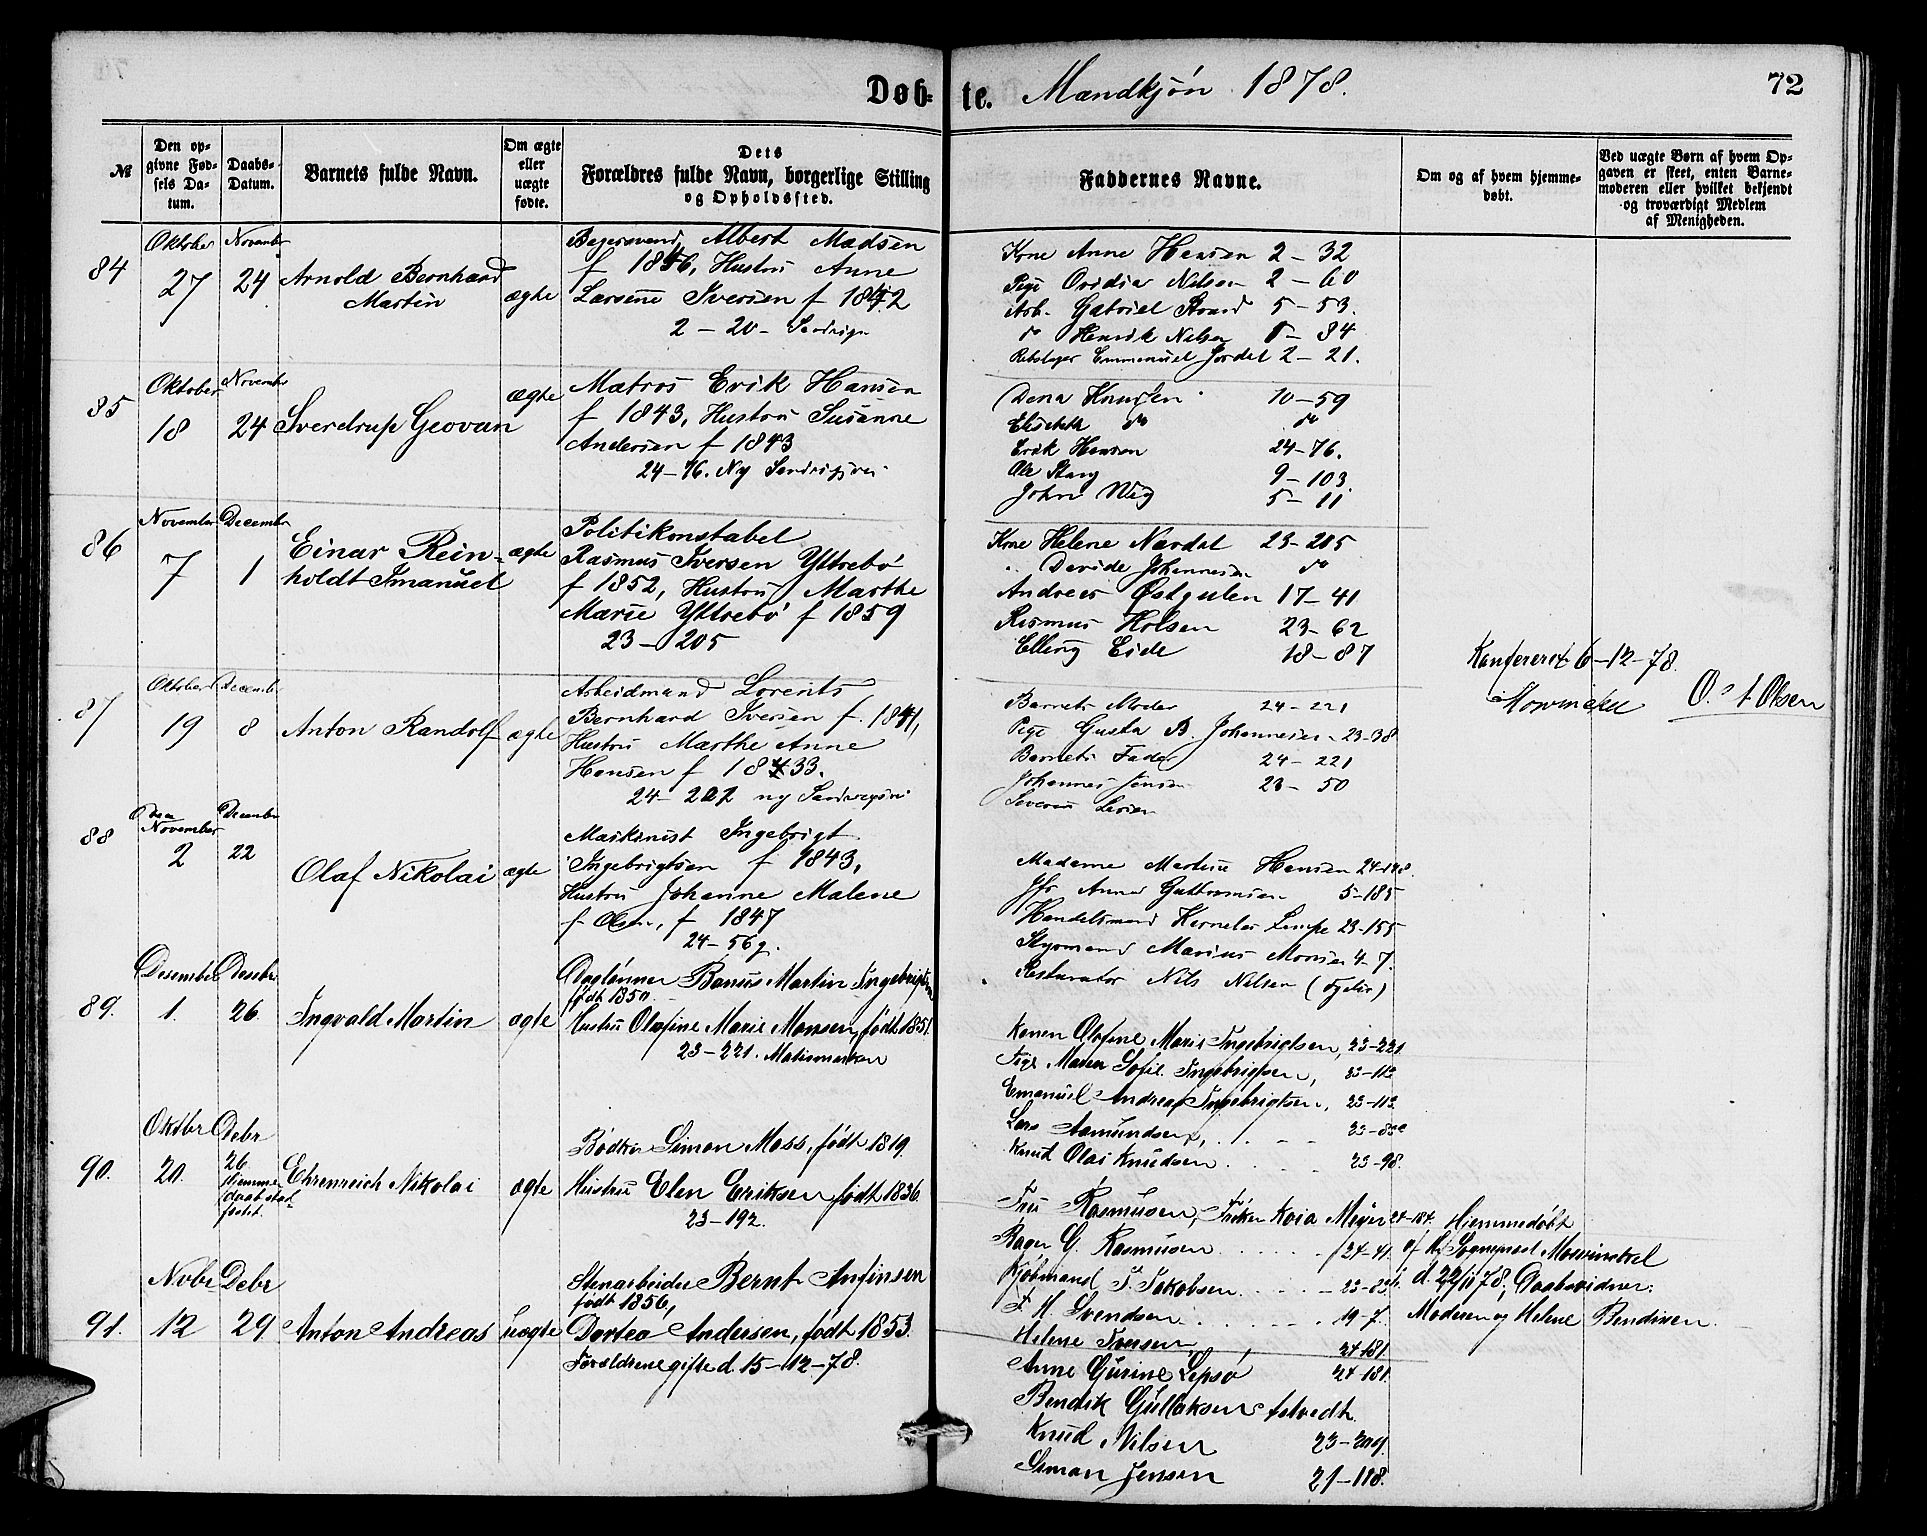 Døb-te. Mandkjøn 1878.
72
№
Den op-
givne Fød-
sels Da-
tum.
Daabs-
Datum.
Barnets fulde Navn.
Om ægte
eller
uægte
fødte.
Dets
Forældres fulde Navn, borgerlige Stilling
og Opholdssted.
Faddernes Navne.
Om og af hvem hjemme-
døbt.
Ved uægte Børn af hvem Op-
gaven er skeet, enten Barne-
moderen eller hvilket bekjendt
og troværdigt Medlem
af Menigheden.
84
Oktober
27
November
24
Arnold Bernhard
Martin
ægte
Bagersvend Albert Madsen
f 1856, Hustru Anne
Larsine Iversen f 1842
2 – 20 –
Kone Anne Hansen 2 – 32
Pige Ovidia Nilsen 2 – 60
Arb. Gabriel Strand 5 – 53.
do Henrik Nilsen – 84
Rebslager Emmanuel Jordal 2 – 21.
85
Oktober
18
November
24
Sverdrup Geovan
ægte
Matros Erik Hansen
f 1843, Hustru Susanne
Andersen f 1843
24 – 76. Ny Sandvigsvei
Dena Knudsen 10 – 59
Elisabeth do do
Erik Hansen 24 – 76.
Ole Stang 9 – 103
John 5 – 11
86
November
7
December
1
Einar Rein-
holdt Imanuel
ægte
Politikonstabel
Rasmus Iversen Yttrebø
f 1852, Hustru Marthe
Marie Yttrebø f 1859
23 – 205
Kone Helene Nærdal 23 – 205
" Davide Johannesen do
Andreas Østgulen 17 – 41
Rasmus Holsen 23 – 62
Elling Eide 18 – 87
Konfereret 6 – 12 – 78.
Mowinckel
O. A Olsen
87
Oktober
19
December
8
Anton Randolf
ægte
Arbeidmand Lorents
Bernhard Iversen f. 1841,
Hustru Marthe Anne
Hansen f 1833.
24 – 221 ny Sandvigsvei
Barnets Moder 24 – 221
Pige Gusta B. Johannesen 23 – 38
Barnets Fader 24 – 221
Johannes Jensen 23 – 50
Severin Larsen
88
November
2
December
22
Olaf Nikolai
ægte
Maskinist Ingebrigt
Ingebrigtsen f 1843,
Hustru Johanne Malene
f Olsen, f 1847
24 – 56
Madame Martine Hansen 24 – 148.
Jfr Anna Guttormsen 5 – 185
Handelsmand Kornelius Lampe 23 – 155
Styrmand Marius Monsen 4 – 7.
Restaratør Nils Nilsen
89.
Desember
1.
Desbr
26.
Ingvald Martin
ægte
Daglønner Banus Martin Ingebrigtsen
født 1850
Hustru Olafine Marie Monsen, født 1851.
23 – 221. Møhlsmarken
Konen Olafine Marie Ingebrigtsen, 23 – 221
Pige Maren Sofie Ingebrigtsen, 23 – 113
Emanuel Andreas Ingebrigtsen, 23 – 113
Lars Aamundsen,
Knud Olai Knudsen 23 – 98.
90.
Oktbr
20.
Debr
26.
Hiemme-
daab stad-
fæstet.
Ehrenreich Nikolai
ægte
Bødker Simon Moss, født 1819.
Hustru Elen Eriksen født 1836.
23 – 192.
Fru Rasmusen, Frøken Kaia Meyer 24 – 184.
Bager G. Rasmusen 24 – 41.
Kjøbmand I. Jakobsen
F. M. Svendsen 19 – 7.
Hiemmedøbt
af Hr Sogneprest Mowinckel
d. 22/11 78. Daabsvidner:
Moderen og Helene Bendixen.
91.
Nobr
12
Debr
29
Anton Andreas
uægte
Stenarbeider Bernt Anfinsen
født 1856,
Dortea Andersen, født 1853.
Forældrene gifte d. 15 – 12 – 78.
Helene Iversen, 24 – 181
Anne Gurine Lepsø 24 – 181.
Bendik Gullaksen Astvedt.
Knud Nilsen 23 – 209.
Simon Jensen 21 – 118.